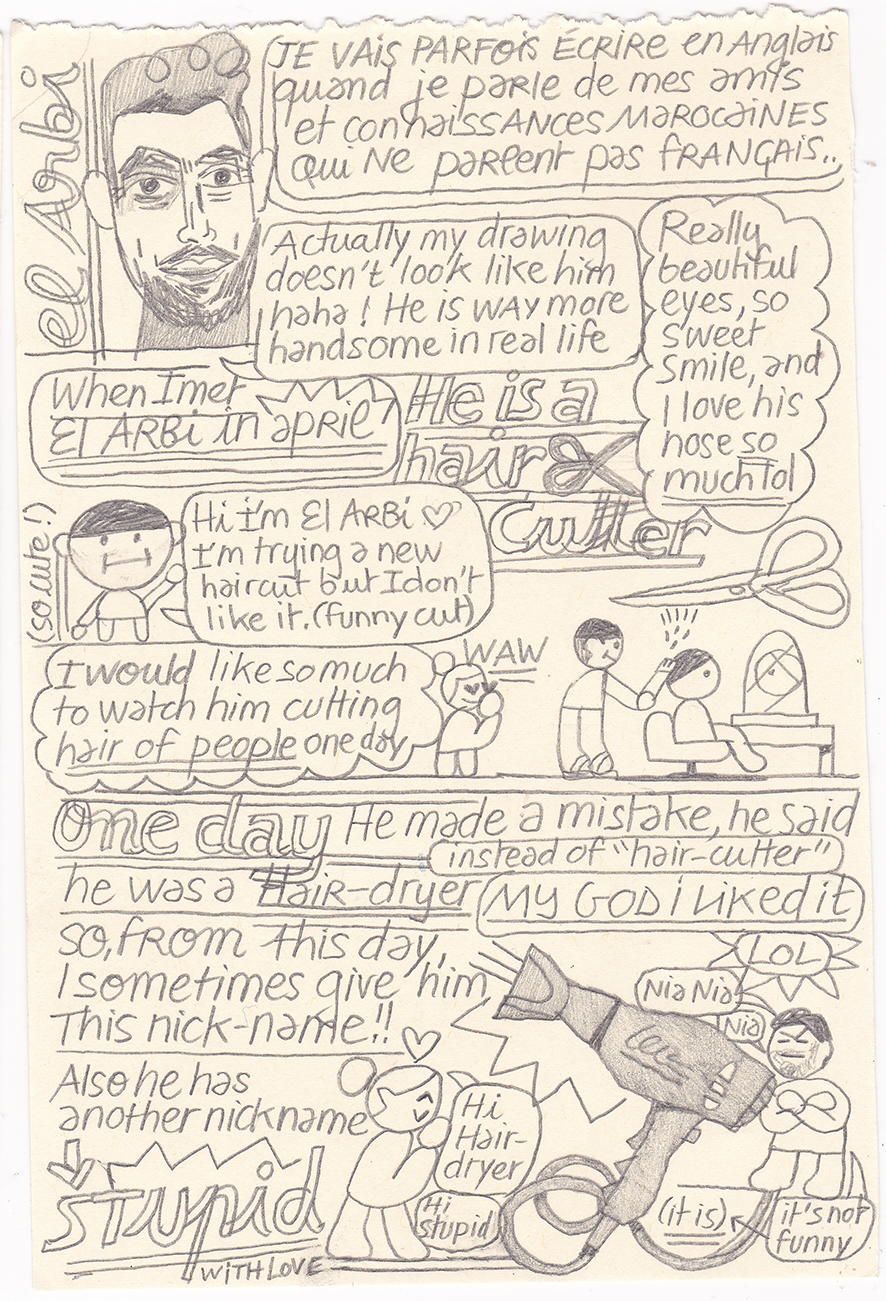 el Arbi
JE VAIS PARFOIS ÉCRIRE en Anglais
quand je parle de mes amis
et connaissANCES MAROCAINES
qui Ne parlent pas FRANÇAIS..
Actually my drawing
doesn't look like him
haha ! He is WAY more
handsome in real life
Really
beautiful
eyes, so
sweet
smile, and
I love his
nose so
much lol
When I met
El ARBi in april
He is a
hair
Cutter
(so cute!)
Hi I'm El ARBi ♡
I'm trying a new
haircut but I don't
like it. (funny cut)
I would like so much
to watch him cutting
hair of people one day
WAW
One day He made a mistake, he said
instead of "hair-cutter"
he was a Hair-dryer
MY GOD i LiKed it
so, FROM this day,
I sometimes give him
This nick-name!!
LOL
Nia Nia
Nia
Also he has
another nickname
STUpid
WiTH LOVE
Hi
Hair-
dryer
Hi
stupid
(it is)
it's not
funny